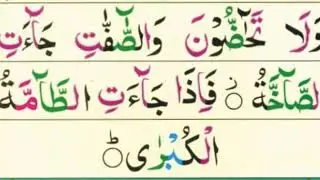 وَلَا تَحٰٓضُّوْنَ وَالصّٰٓفّٰتِ جَآءَتِ
الصَّآخَّةُ ۞ فَاِذَا جَآءَتِ الطَّآمَّةُ
الْكُبْرٰى ۞